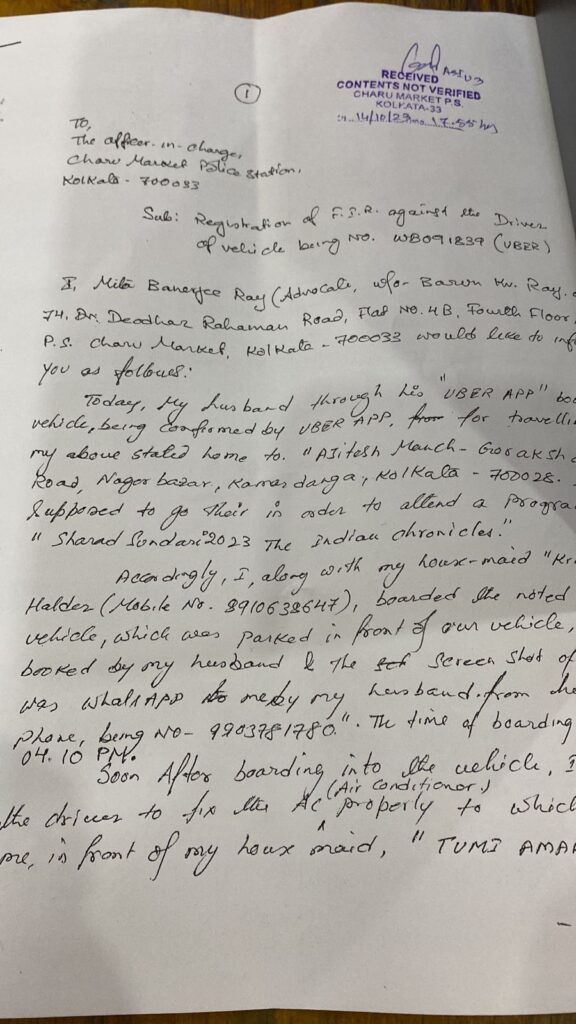 1
RECEIVED
CONTENTS NOT VERIFIED
CHARU MARKET P.S.
KOLKATA-33
14/10/23 17.55 hrs
To,
The officer-in-charge,
Charu Market Police Station,
Kolkata - 700033
Sub: Registration of F.I.R. against the Driver
of vehicle being No. WB091839 (UBER)
I, Mita Banerjee Ray (Advocate, w/o- Barun Kr. Ray.
74, Dr. Deodhar Rahaman Road, Flat No. 4B, Fourth Floor,
P.S. Charu Market, Kolkata - 700033 would like to inf
you as follows:
Today, My husband through his "UBER APP" boo
vehicle, being confirmed by UBER APP, for travelli
my above stated home to. "Ajitesh Manch - Goraksh
Road, Nagerbazar, Kamardanga, Kolkata - 700028.
Supposed to go their in order to attend a progra
"Sharad Sundari 2023 The Indian Chronicles."
Accordingly, I, along with my house-maid "Kr
Halder (Mobile No. 8910638647), boarded the noted
vehicle, which was parked in front of our vehicle,
booked by my husband & the screen shot of
was WhatsAPP to me by my husband from he
phone, being No- 9903781780". The time of boarding
04.10 PM.
Soon After boarding into the vehicle, I
(Air Conditioner)
the driver to fix the AC properly to which
me, in front of my house maid, "TUMI AMAR